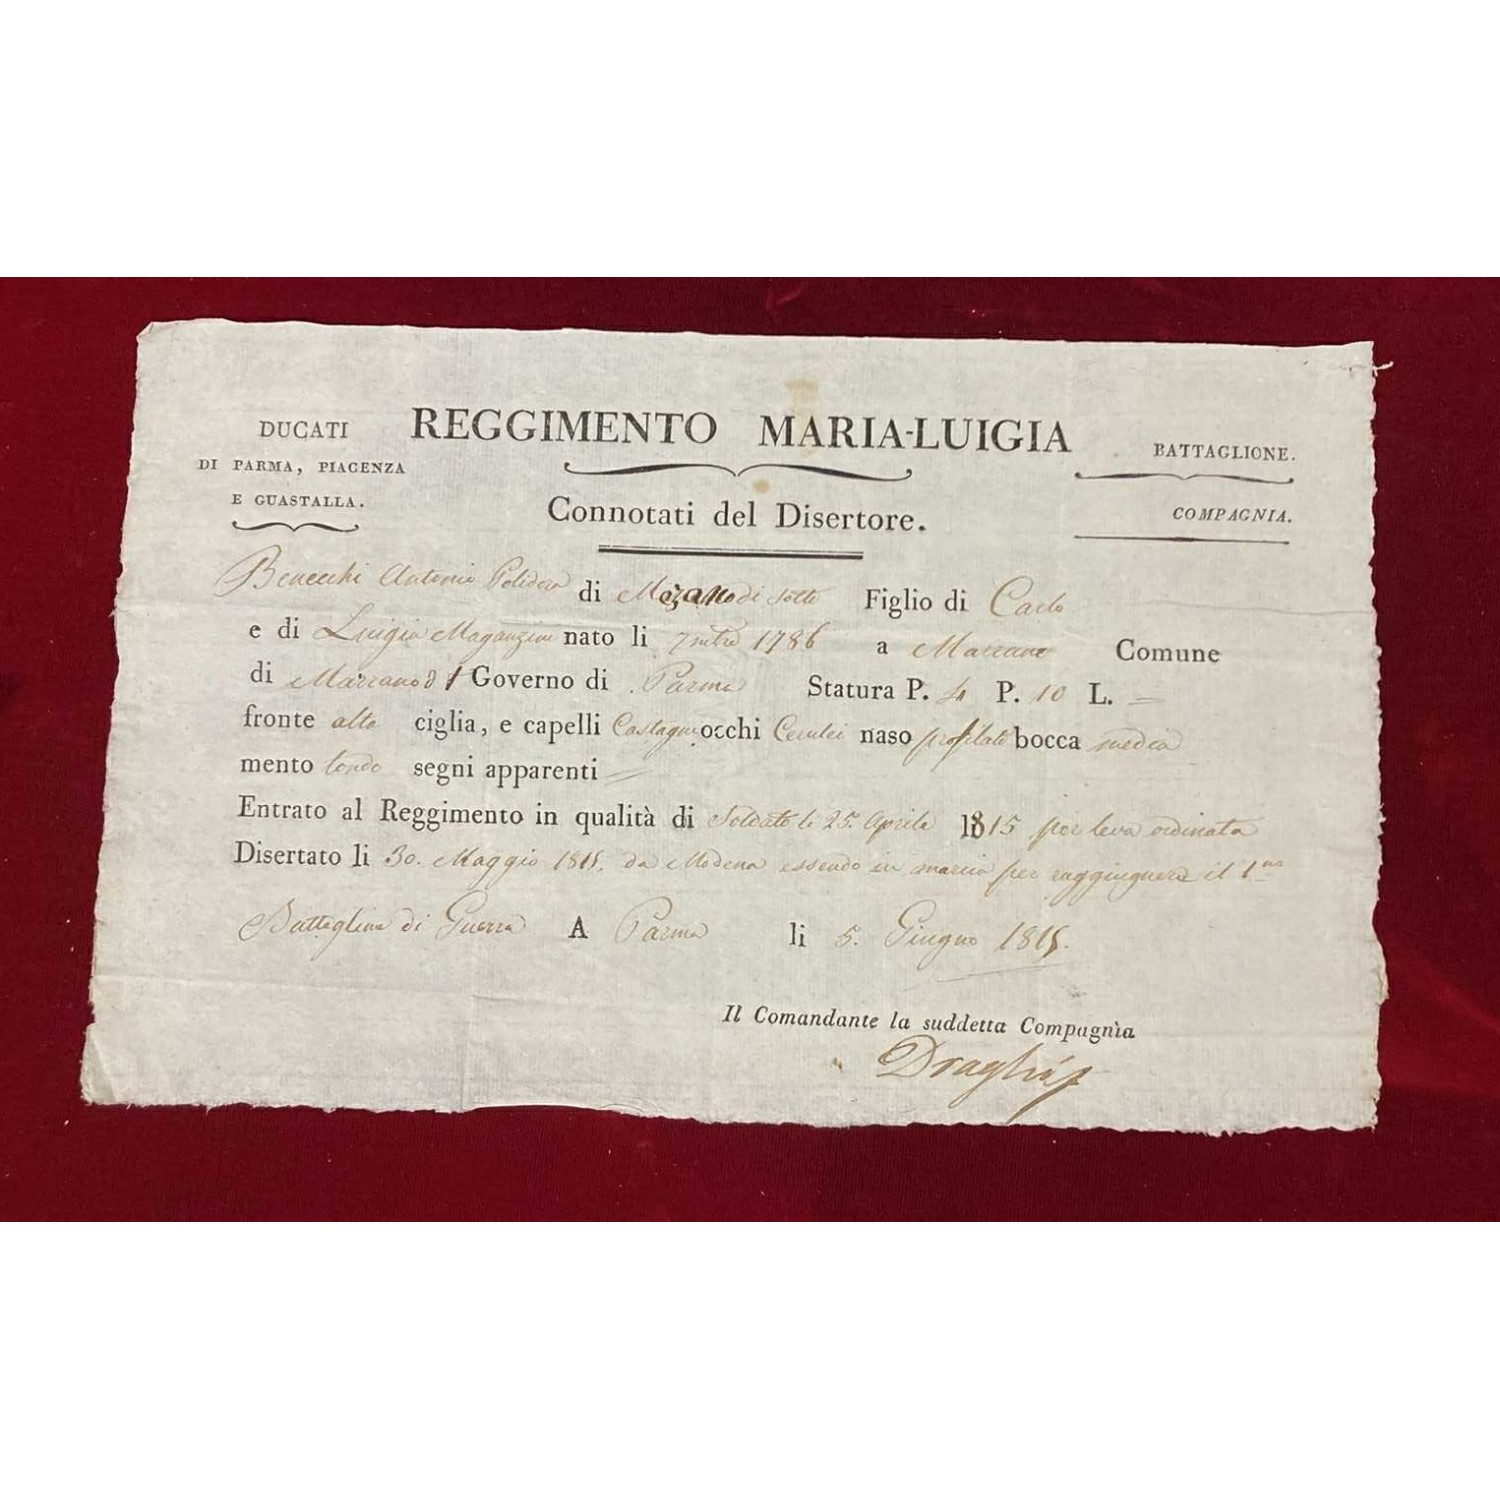 DUCATI
DI PARMA, PIACENZA
E GUASTALLA.
REGGIMENTO MARIA-LUIGIA
Connotati del Disertore.
BATTAGLIONE.
COMPAGNIA.
Benecchi Antonio Polidoro di Mozano di Sotto Figlio di Carlo
e di Luigia Maganzini nato li 7mbre 1786 a Marzano Comune
di Marzano Governo di Parma Statura P. 4 P. 10 L. =
fronte alta ciglia, e capelli Castagni occhi Cerulei naso profilato bocca media
mento tondo segni apparenti =
Entrato al Reggimento in qualità di Soldato li 25. Aprile 1815 per leva ordinata
Disertato li 30. Maggio 1815. da Modena essendo in marcia per raggiugnere il 1mo
Battaglione di Guerra A Parma li 5. Giugno 1815.
Il Comandante la suddetta Compagnia
Draghi